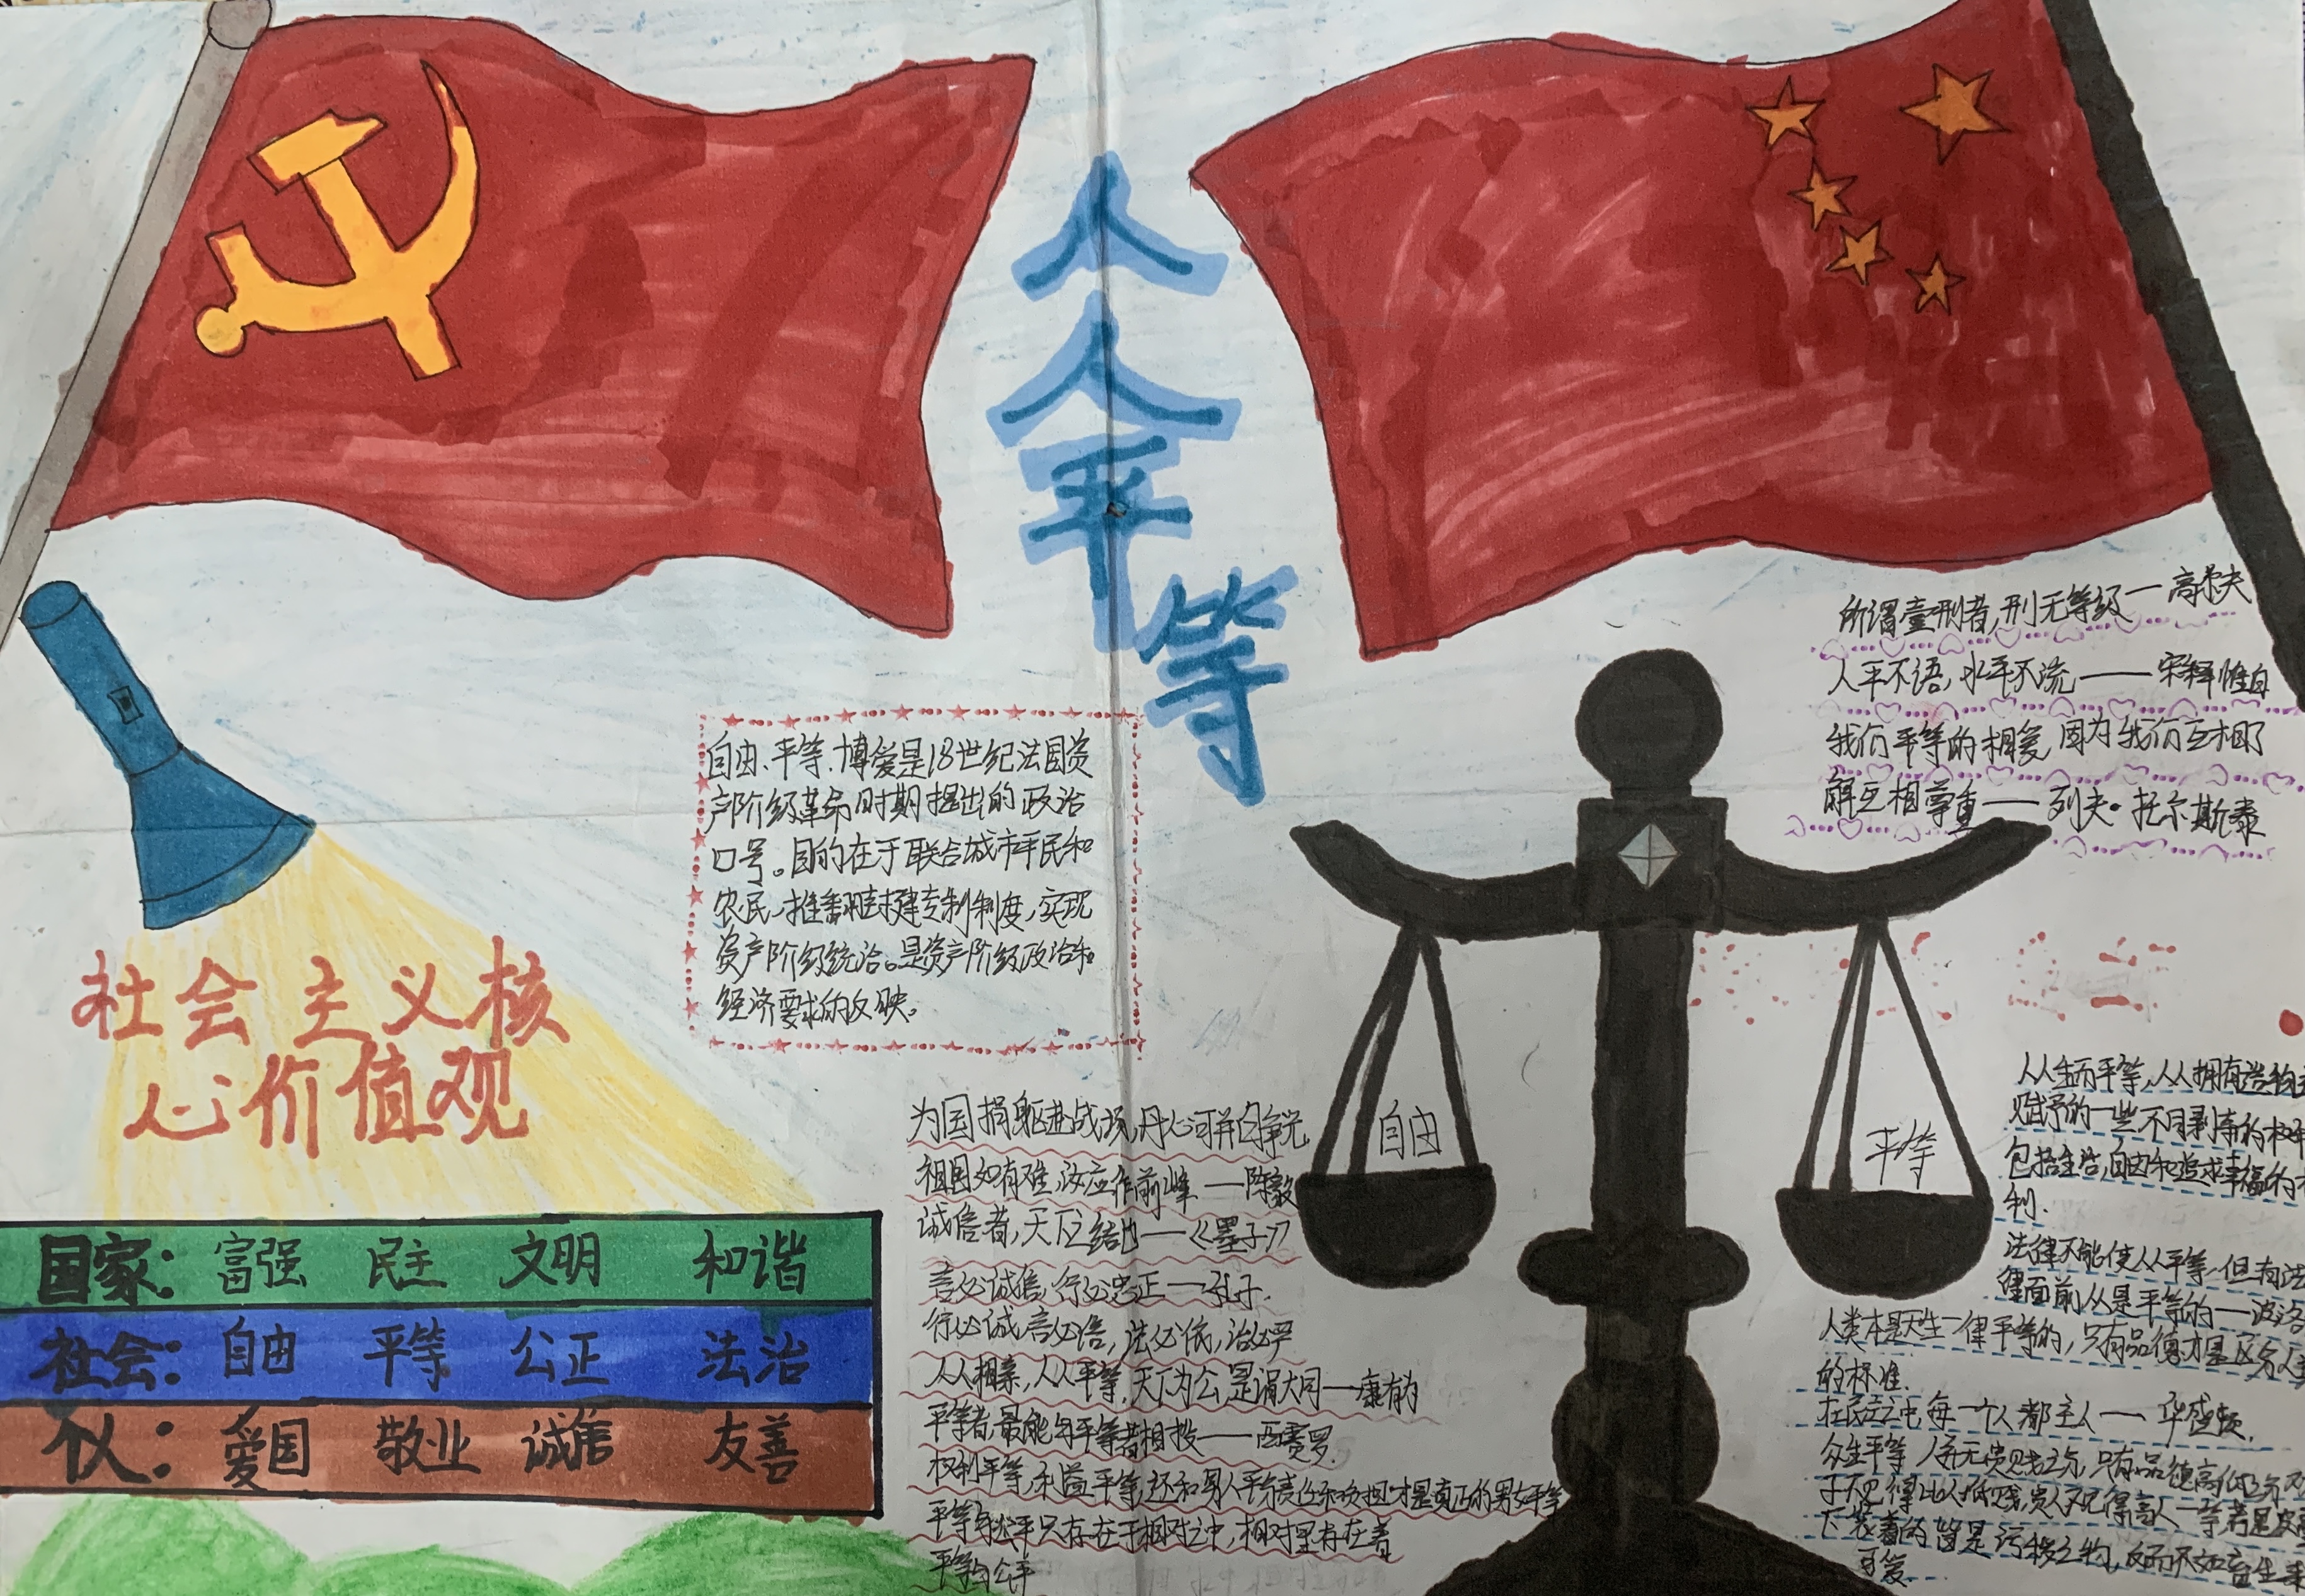 人人平等
所谓壹刑者,刑无等级—高尔夫
人平不语,水平不流——宋释惟白
我们平等的相爱,因为我们互相了
解互相尊重——列夫·托尔斯泰
自由、平等、博爱是18世纪法国资
产阶级革命时期提出的政治
口号。目的在于联合城市平民和
农民,推翻封建专制制度,实现
资产阶级统治。是资产阶级政治和
经济要求的反映。
社会主义核
心价值观
国家: 富强 民主 文明 和谐
社会: 自由 平等 公正 法治
个人: 爱国 敬业 诚信 友善
为国捐躯赴战场,丹心可并日争光
祖国如有难,汝应作前峰——陈毅
诚信者,天下之结也—《墨子》
言必诚信,行必忠正—孔子.
行必诚,言必信,法必依,治必严
人人相亲,人人平等,天下为公,是谓大同—康有为
平等者,最能与平等者相投——西塞罗.
权利平等,利益平等,还和男人平等责任和负担才是真正的男女平等
平等与公平只存在于相对之中,相对里存在着
平等与公平
自由
平等
人人生而平等,人人拥有造物
赋予的一些不可剥夺的权
包括生活,自由和追求幸福的
利.
法律不能使人人平等,但在法
律面前人人是平等的—波洛
人类本是天生一律平等的,只有品德才是区分人
的标准.
在民主之中,每一个人都主人——华盛顿.
众生平等,人并无贵贱之分,只有品德高低之分